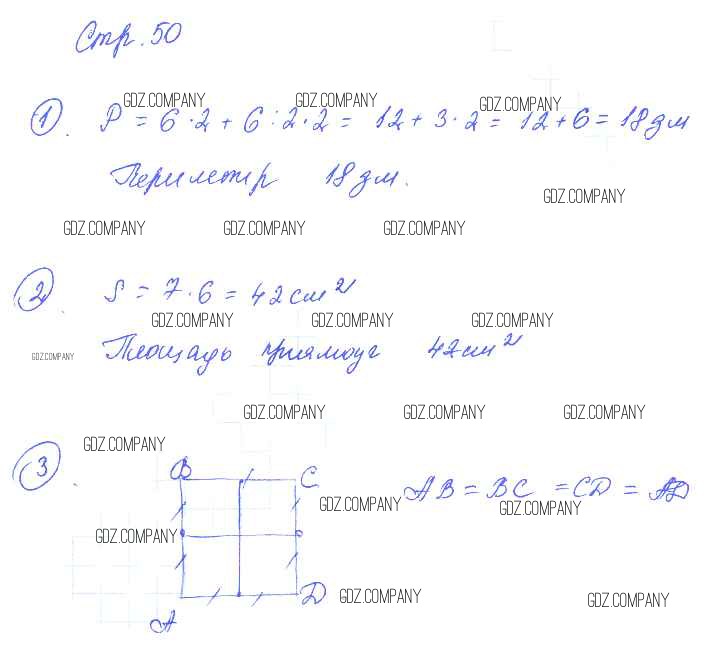 Стр. 50
GDZ.COMPANY GDZ.COMPANY GDZ.COMPANY
1. P = 6·2 + 6:2·2 = 12 + 3·2 = 12 + 6 = 18 дм
Периметр 18 дм.
GDZ.COMPANY
GDZ.COMPANY GDZ.COMPANY GDZ.COMPANY
2. S = 7·6 = 42 см²
GDZ.COMPANY GDZ.COMPANY GDZ.COMPANY
Площадь прямоуг 42 см²
GDZ.COMPANY
GDZ.COMPANY GDZ.COMPANY GDZ.COMPANY
GDZ.COMPANY
3.
B C
AB = BC = CD = AD
GDZ.COMPANY GDZ.COMPANY
GDZ.COMPANY
A D
GDZ.COMPANY GDZ.COMPANY